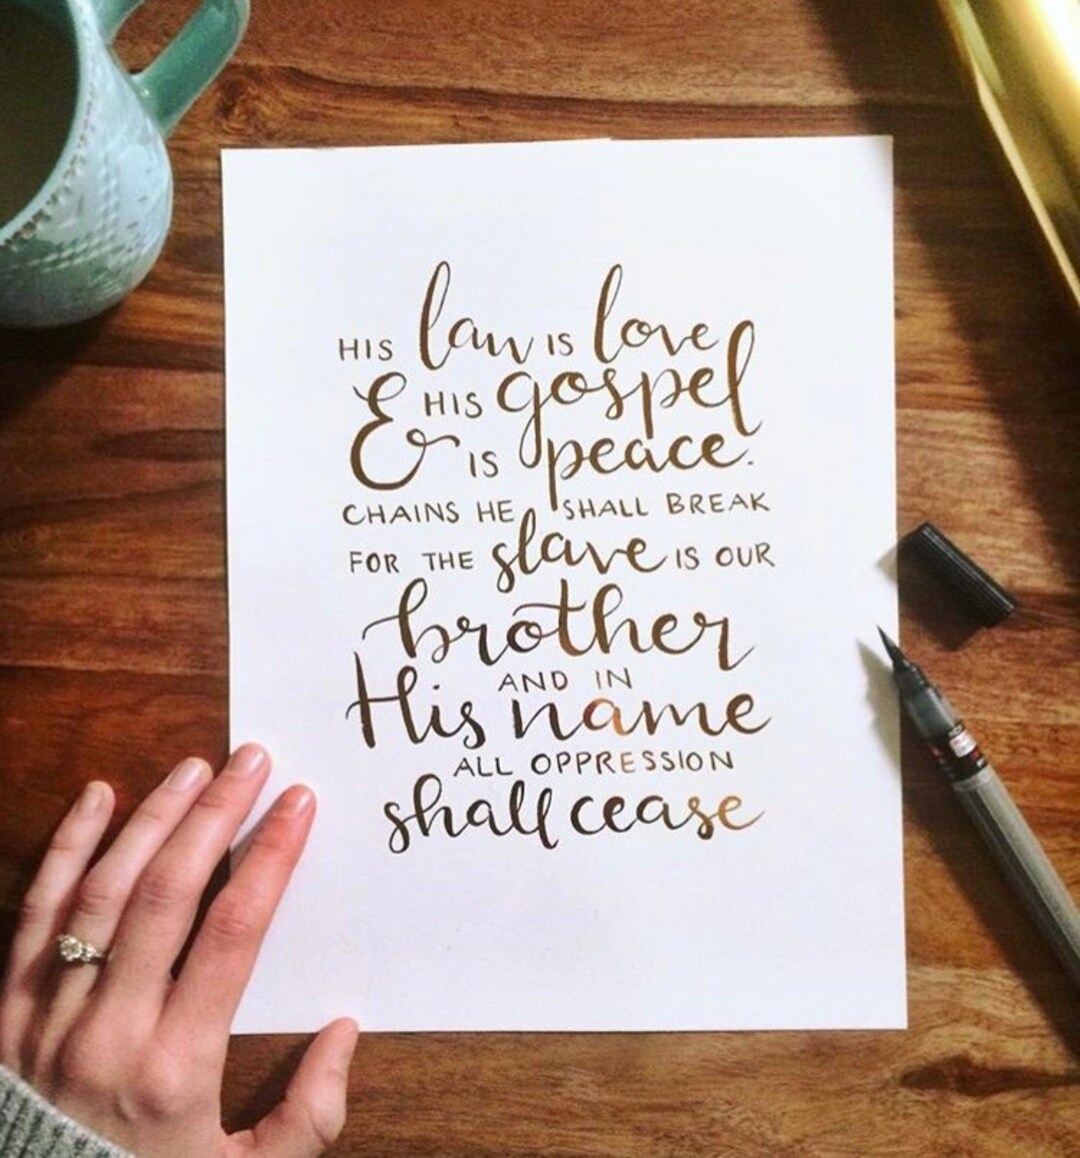 HIS law IS love
& HIS gospel
IS peace.
CHAINS HE SHALL BREAK
FOR THE slave IS OUR
brother
AND IN
His name
ALL OPPRESSION
shall cease